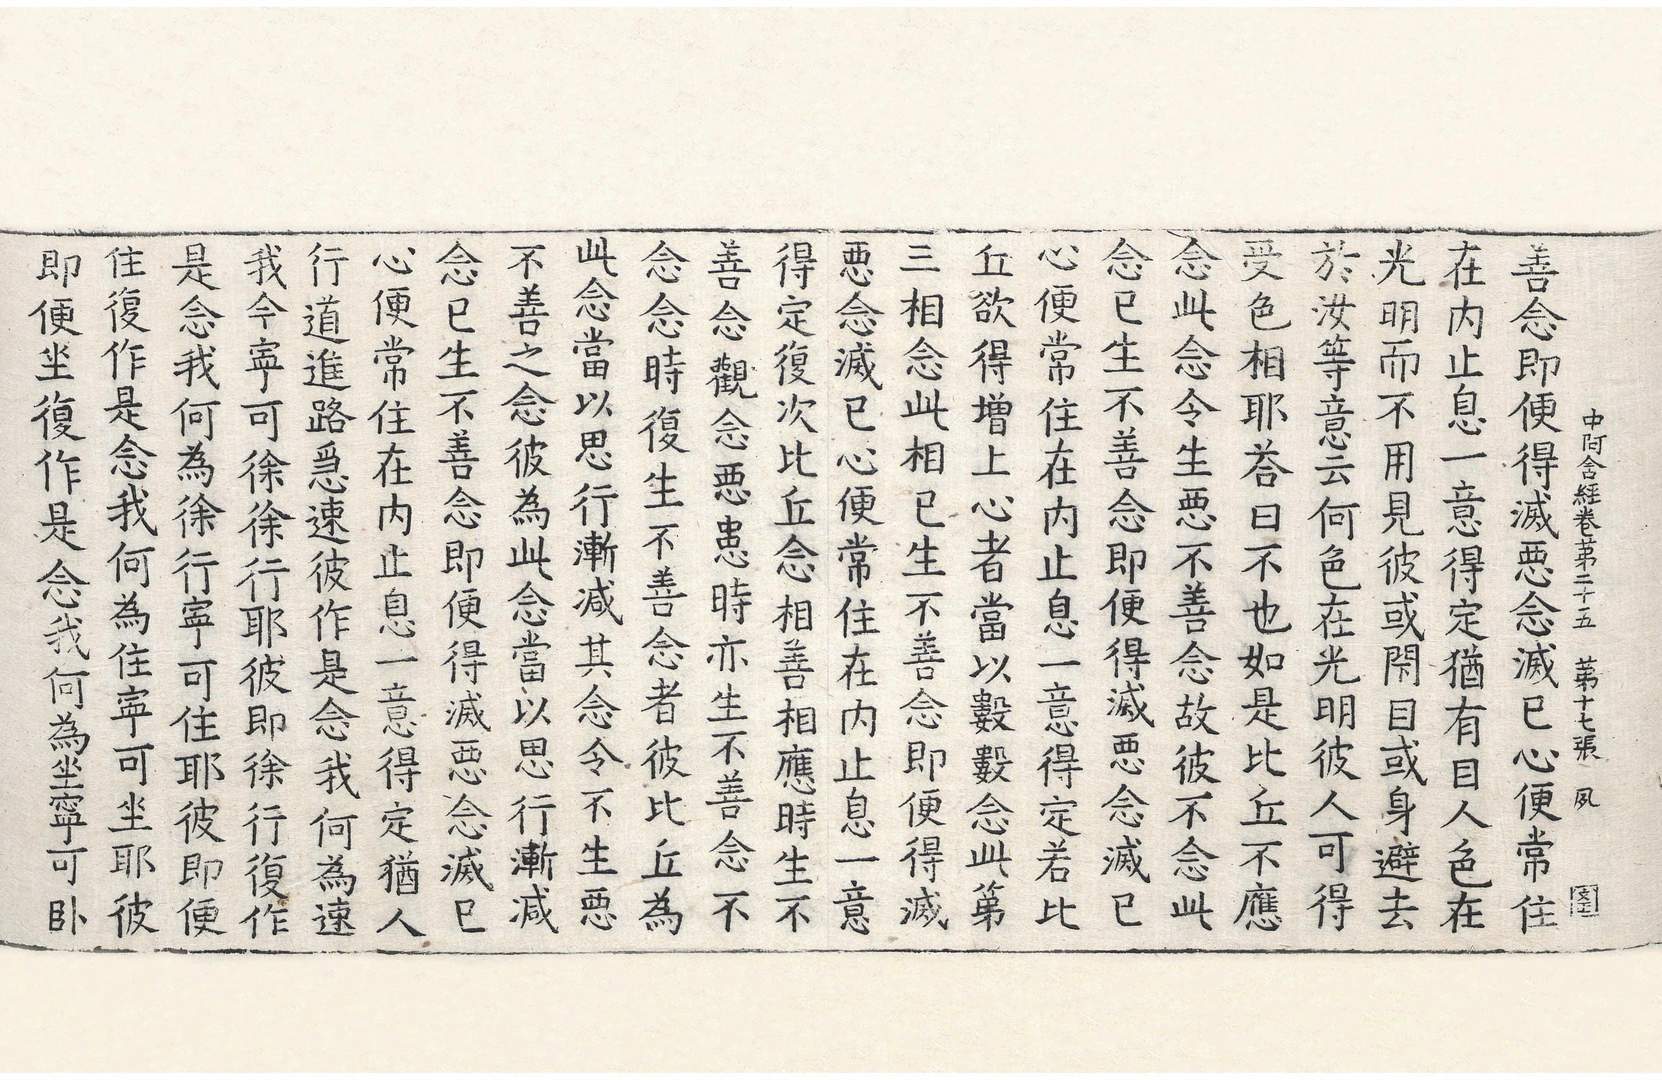 中阿含經卷第二十五　第十七張　夙
善念即便得滅惡念滅已心便常住
在內止息一意得定猶有目人色在
光明而不用見彼或閇目或身避去
於汝等意云何色在光明彼人可得
受色相耶荅曰不也如是比丘不應
念此念令生惡不善念故彼不念此
念已生不善念即便得滅惡念滅已
心便常住在內止息一意得定若比
丘欲得增上心者當以數數念此第
三相念此相已生不善念即便得滅
惡念滅已心便常住在內止息一意
得定復次比丘念相善相應時生不
善念觀念惡患時亦生不善念不
念念時復生不善念者彼比丘為
此念當以思行漸減其念令不生惡
不善之念彼為此念當以思行漸減
念已生不善念即便得滅惡念滅已
心便常住在內止息一意得定猶人
行道進路急速彼作是念我何為速
我今寧可徐徐行耶彼即徐行復作
是念我何為徐行寧可住耶彼即便
住復作是念我何為住寧可坐耶彼
即便坐復作是念我何為坐寧可臥